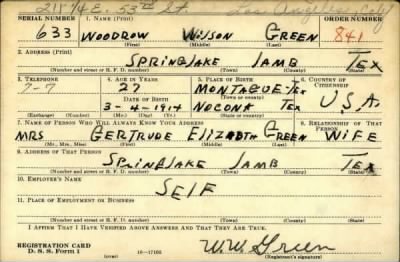 211 1/4 E. 53rd St. Los Angeles, Calif
SERIAL NUMBER 1. NAME (Print) ORDER NUMBER
633 WOODROW WILSON GREEN 841
(First) (Middle) (Last)
2. ADDRESS (Print)
SPRINGLAKE LAMB TEX
(Number and street or R. F. D. number) (Town) (County) (State)
3. TELEPHONE 4. AGE IN YEARS 5. PLACE OF BIRTH 6. COUNTRY OF CITIZENSHIP
27 MONTAGUE-TEX
DATE OF BIRTH (Town or county)
3-4-1914 NOCONA TEX U.S.A.
(Exchange) (Number) (Mo.) (Day) (Yr.) (State or country)
7. NAME OF PERSON WHO WILL ALWAYS KNOW YOUR ADDRESS 8. RELATIONSHIP OF THAT PERSON
MRS GERTRUDE ELIZABTH GREEN WIFE
(Mr., Mrs., Miss) (First) (Middle) (Last)
9. ADDRESS OF THAT PERSON
SPRINGLAKE LAMB TEX
(Number and street or R. F. D. number) (Town) (County) (State)
10. EMPLOYER'S NAME
SELF
11. PLACE OF EMPLOYMENT OR BUSINESS
(Number and street or R. F. D. number) (Town) (County) (State)
I AFFIRM THAT I HAVE VERIFIED ABOVE ANSWERS AND THAT THEY ARE TRUE.
REGISTRATION CARD
D. S. S. Form 1 16-17105 W.W. Green
(over) (Registrant's signature)